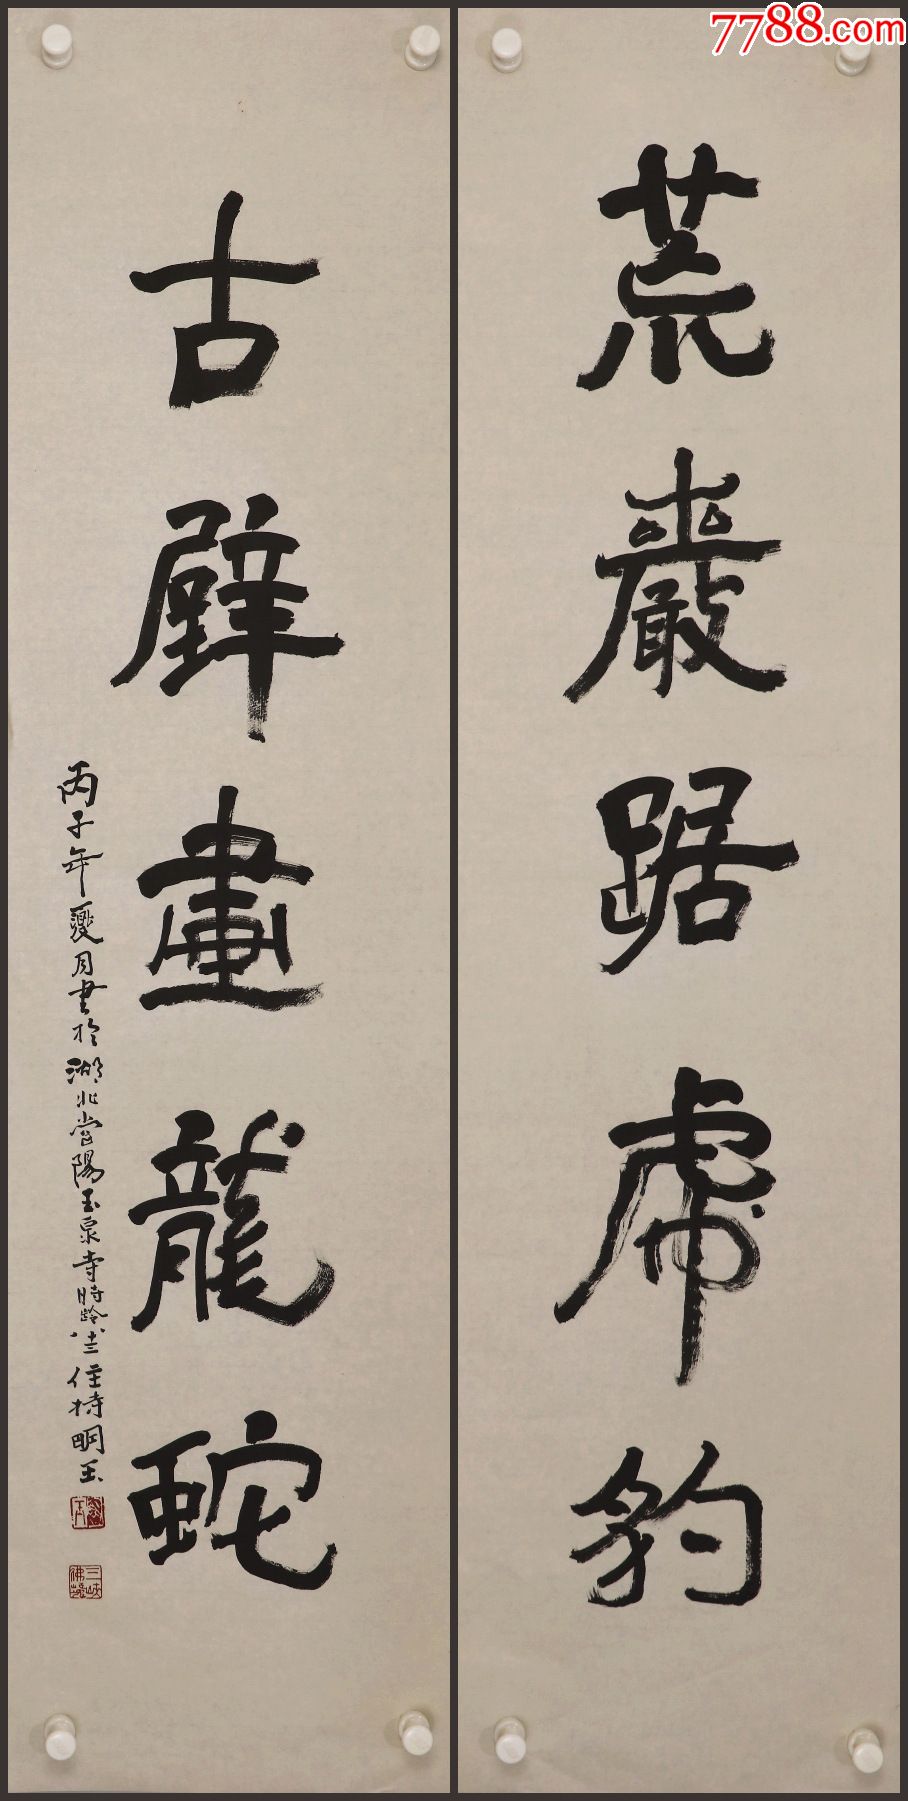 7788.com
荒巖踞虎豹
古壁畫龍蛇
丙子年夏月書於湖北當陽玉泉寺時齡八十三住持明玉